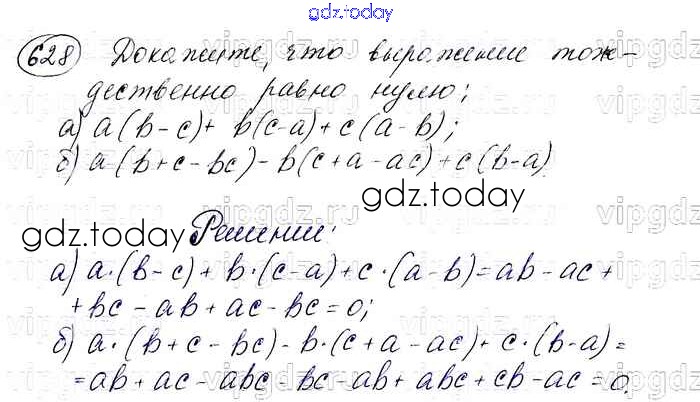 gdz.today
628 Докажите, что выражение тож-
дественно равно нулю:
а) a(b-c)+ b(c-a)+c(a-b);
б) a(b+c-bc)-b(c+a-ac)+c(b-a)
gdz.today
gdz.today
Решение:
а) a·(b-c)+b·(c-a)+c·(a-b)=ab-ac+
+bc-ab+ac-bc=0;
б) a·(b+c-bc)-b·(c+a-ac)+c·(b-a)=
=ab+ac-abc-bc-ab+abc+cb-ac=0.